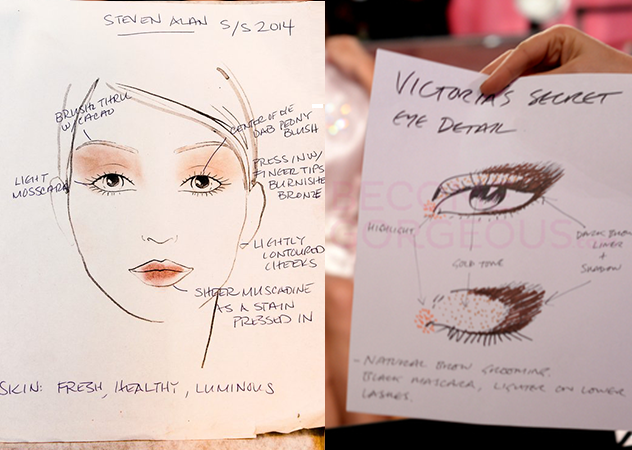 STEVEN ALAN S/S 2014
BRUSH THRU
W/ CACAO
CENTER OF EYE
DAB PEONY
BLUSH
LIGHT
MOSSCARA
PRESS IN W/
FINGER TIPS
BURNISHED
BRONZE
- LIGHTLY
CONTOURED
CHEEKS
SHEER MUSCADINE
AS A STAIN
PRESSED IN
SKIN: FRESH, HEALTHY, LUMINOUS
VICTORIA'S SECRET
EYE DETAIL
HIGHLIGHT
DARK BROWN
LINER
+
SHADOW
GOLD TONE
- NATURAL BROW GROOMING,
BLACK MASCARA, LIGHTER ON LOWER
LASHES.